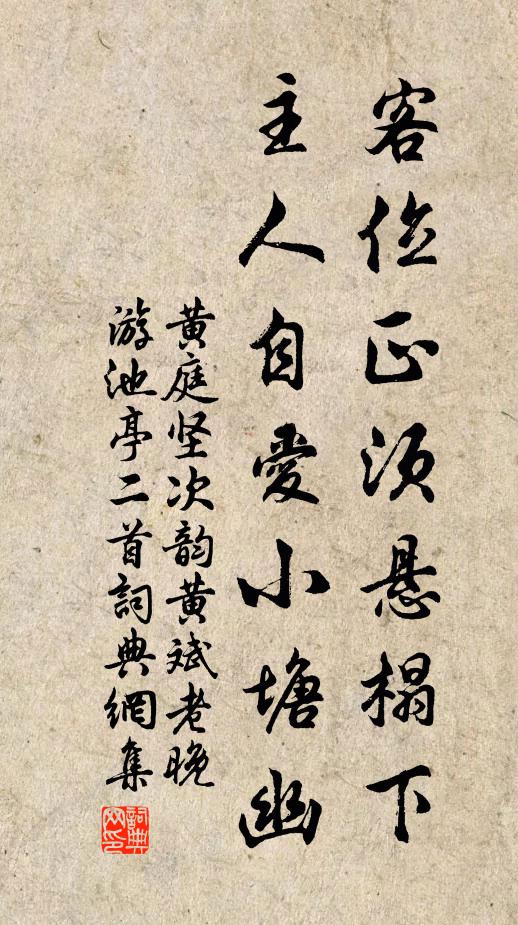 客位正须悬榻下
主人自愛小塘幽
黄庭坚次韵黄斌老晚
游池亭二首詞典網集
詞典
网印